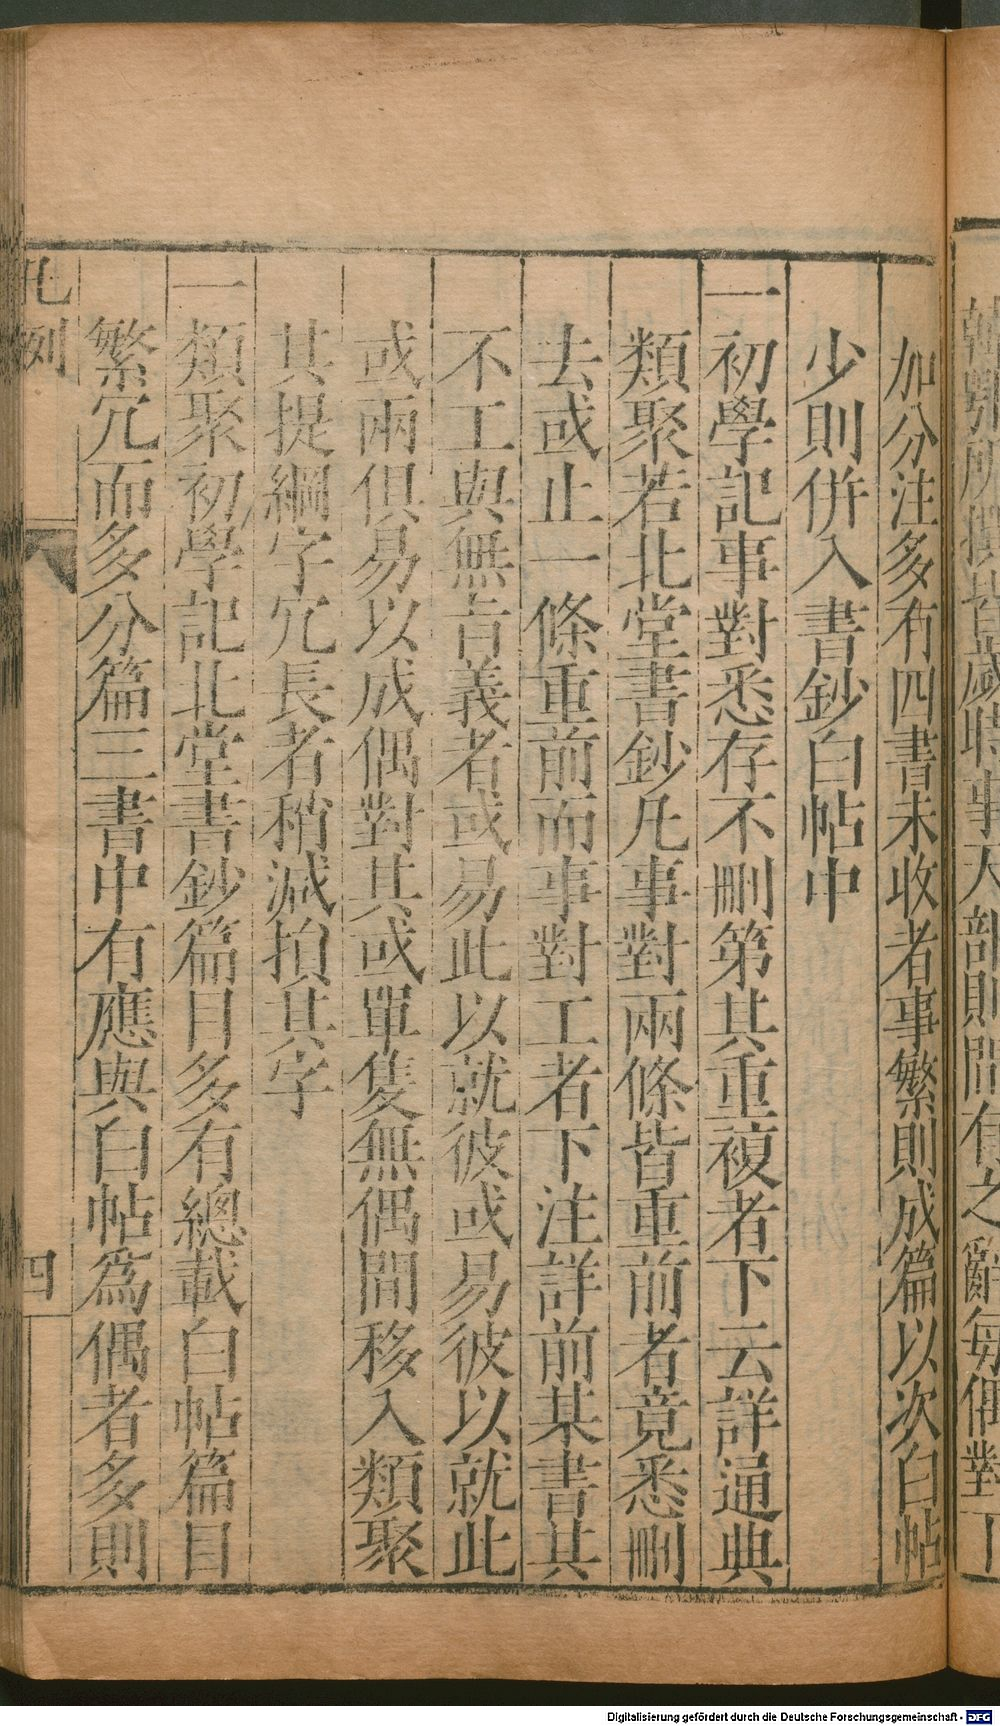 加分注多有四書未收者事繁則成篇以次白帖
少則併入書鈔白帖中
一初學記事對悉存不刪第其重複者下云詳通典
類聚若北堂書鈔凡事對兩條皆重前者竟悉刪
去或止一條重前而事對工者下注詳前某書其
不工與無肯義者或易此以就彼或易彼以就此
或兩俱易以成偶對其或單隻無偶間移入類聚
其提綱字冗長者稍減損其字
一類聚初學記北堂書鈔篇目多有總載白帖篇目
繁冗而多分篇三書中有應與白帖為偶者多則
凡例
四
所撰皆歲時事大部則間有之辭每偶對下
Digitalisierung gefördert durch die Deutsche Forschungsgemeinschaft - DFG